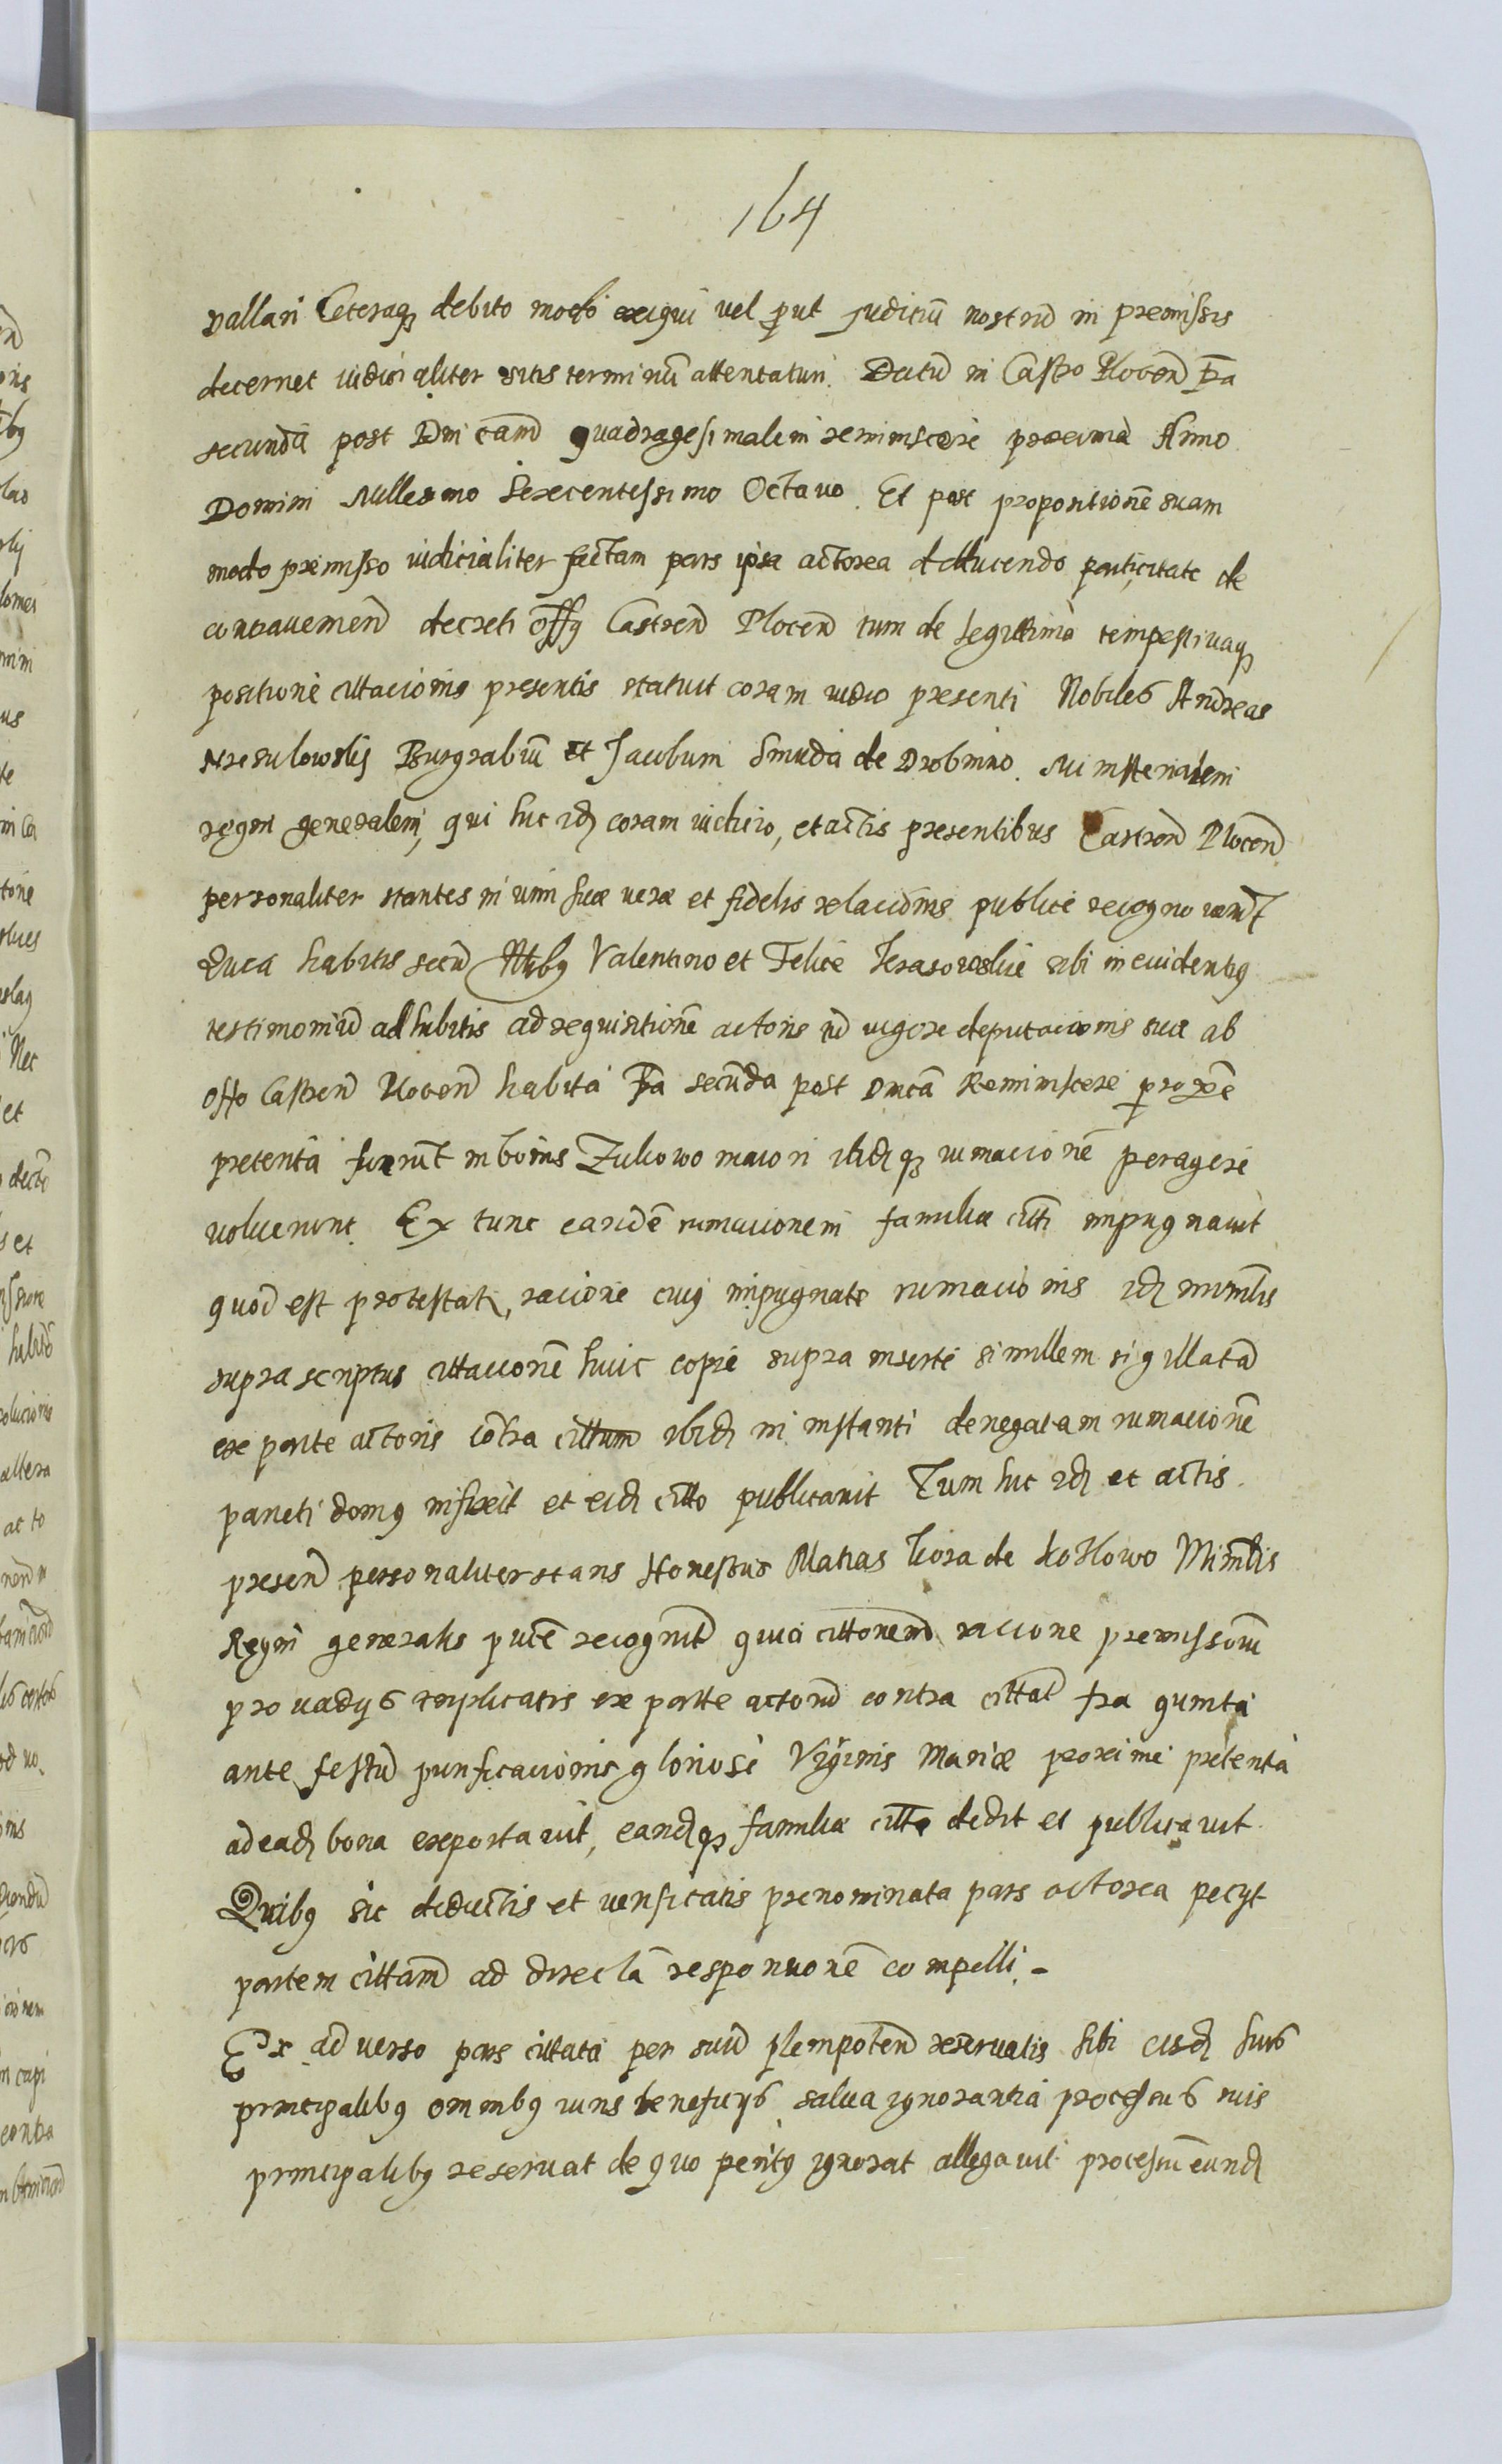 164
vallari Ceteraq debito modo exigui vel put Judiciũ nostrũ in premissis
decernet iudicialiter sitis terminũ attentaturi. Datũ in Castro Plocen Fa
secunda post Dnicam quadragesimalem reminiscere proxima Anno
Domini Millesimo Sexcentessimo Octavo. Et post propositionẽ suam
modo premisso iudicialiter factam pars ipsa actorea deducendo de
contravenien decreti offy Castren Plocen tum de legittima tempestivaq
positione cittacionis presentis statuit coram iudio presenti Nobiles Andreas
Burgrabiũ et Jacobum Smuda de Drobnino Ministerialem
regni generalem, qui huc idz coram iudicio, et actis presentibus Castren Plocen
personaliter stantes in vim suæ veræ et fidelis relacionis publice recognoverũt
Quia habitis secũ Ntbg Valentino et Felice sibi in evidentig
testimoniũ adhibitis ad requisitionẽ actoris id vigore deputacionis suæ ab
offo Castren Plocen habita Fa secũda post Dnicã Reminiscere proxẽ
preterita fuerũt in bonis Zukowo maiori ibidz q rumacionẽ peragere
voluerunt. Ex tunc eandẽ rumacionem familia citti impugnavit
quod est protestatz, racione cuig impugnate rumacionis idz minrlis
suprascriptus cittacionẽ huic copie supra inserte simillem sigillatã
ex parte actoris cõtra cittum ibidz in instanti denegatam rumacionẽ
parieti domg infixit et eidz citto publicavit Tum huc idz et actis
presen personaliter stans Honestus Matias de Kozlowo Minrlis
Regni generalis pucẽ recognit quia cittonem racione premissorũ
pro vadys triplicatis ex parte actorũ contra cittat fra quinta
ante festũ purificacionis gloriose Virginis Mariæ proxime preterita
ad eadz bona exportavit, eandz q familiæ citte dedit et publicavit.
Quibg sic deductis et verificatis prenominata pars actorea pecyt
partem cittam ad directã responsionẽ compelli. -
Ex adverso pars cittata per suũ plenipoten reservatis sibi eisdz suis
principalibg omnibg iuris beneficys salva ignorantia processus suis
principalibg reservat de quo penitg ignorat allegavit processũ eundz